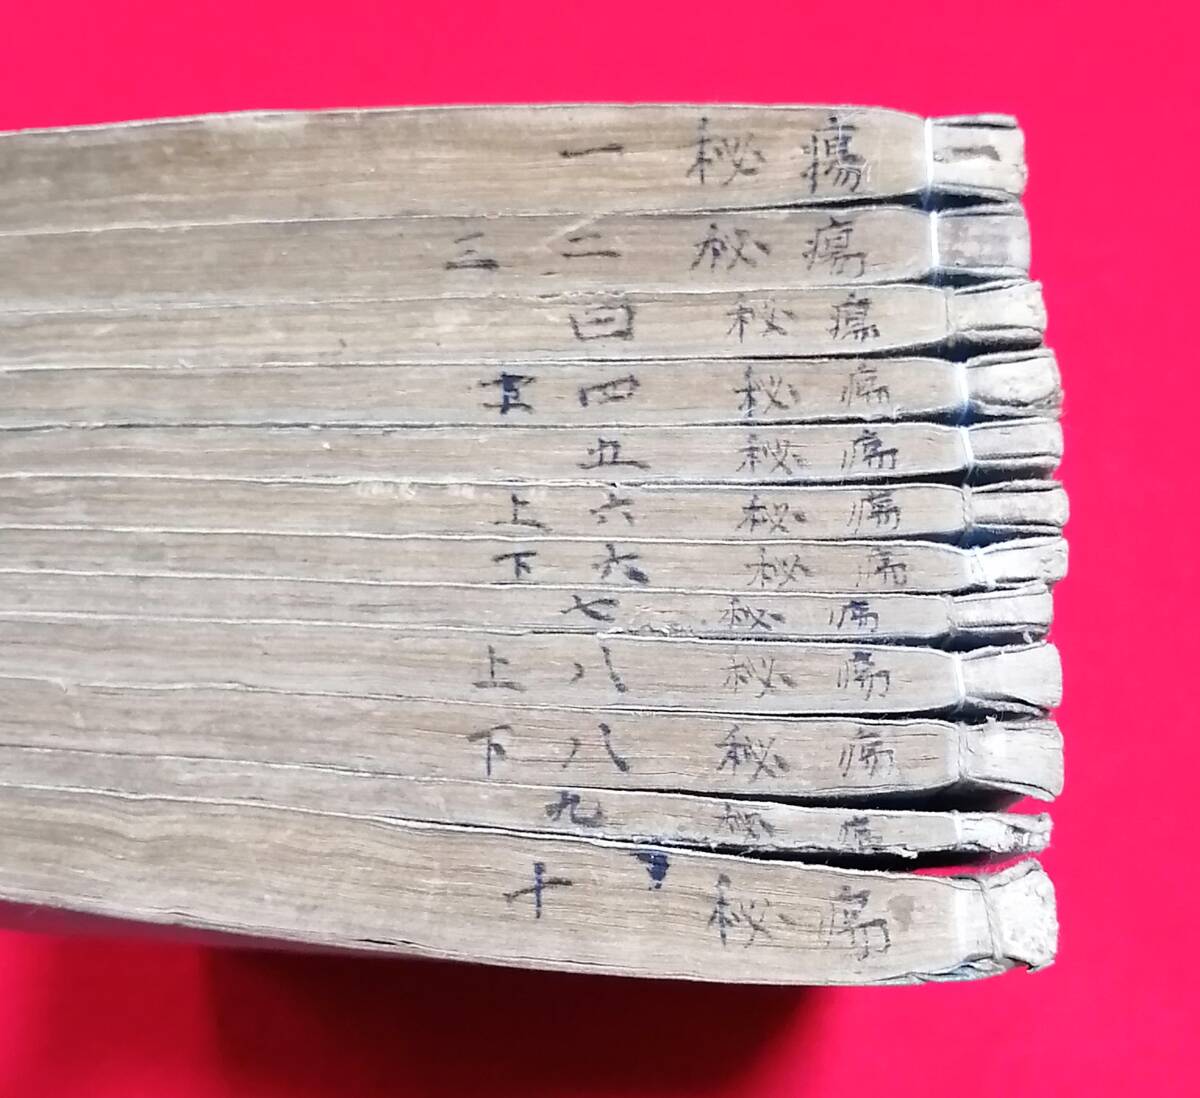 一
瘍秘一
瘍秘二三
瘍秘
瘍秘四五
瘍秘五
瘍秘六上
瘍秘六下
瘍秘七
瘍秘八上
瘍秘八下
瘍秘九
瘍秘十